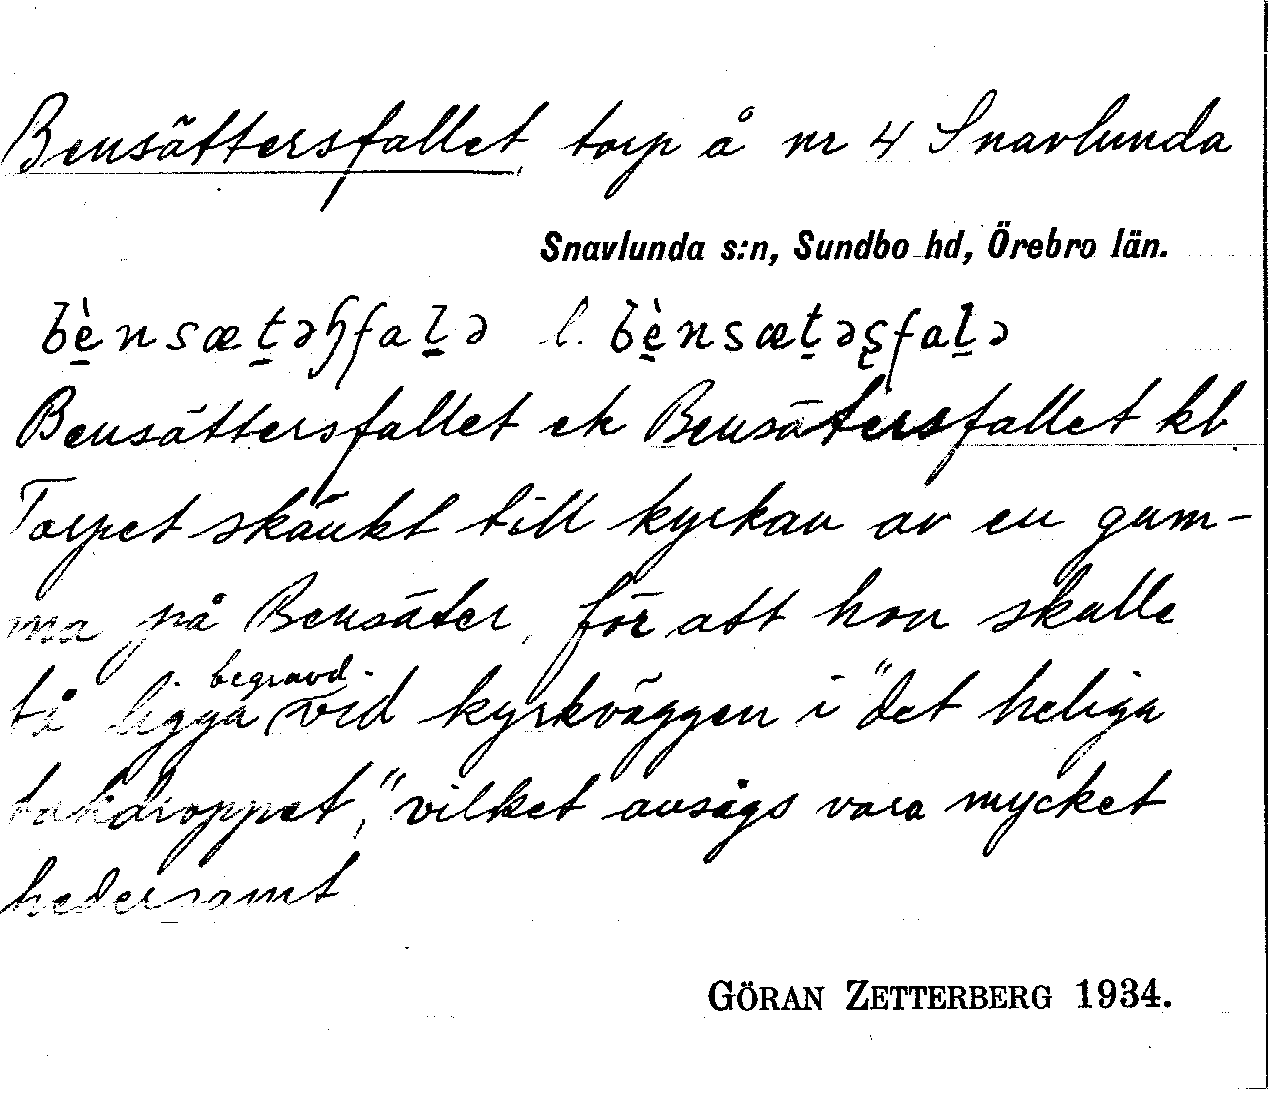 Bensättersfallet, torp å nr 4 Snavlunda
Snavlunda s:n, Sundbo hd, Örebro län.
bè̱nsæt̲əꞕfal̲ə l. bè̱nsæt̲əʂfal̲ə
Bensättersfallet ek Bensätersfallet kb
Torpet skänkt till kyrkan av en gum-
ma på Bensäter, för att hon skulle
få ligga begravd vid kyrkväggen i "det heliga
takdroppet", vilket ansågs vara mycket
hedersamt
GÖRAN ZETTERBERG 1934.